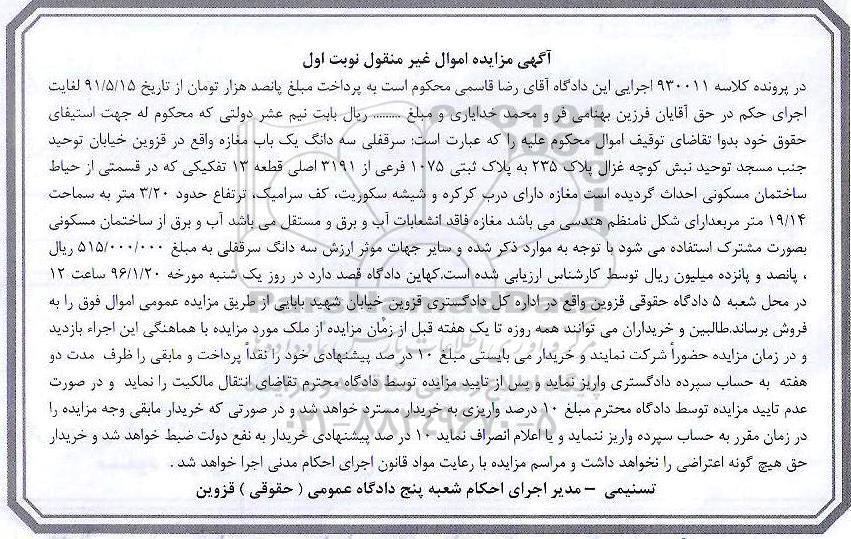 آگهی مزایده اموال غیر منقول نوبت اول
در پرونده کلاسه ۹۳۰۰۱۱ اجرایی این دادگاه آقای رضا قاسمی محکوم است به پرداخت مبلغ پانصد هزار تومان از تاریخ ۹۱/۵/۱۵ لغایت
اجرای حکم در حق آقایان فرزین بهنامی فر و محمد خدایاری و مبلغ ........ ریال بابت نیم عشر دولتی که محکوم له جهت استیفای
حقوق خود بدوا تقاضای توقیف اموال محکوم علیه را که عبارت است: سرقفلی سه دانگ یک باب مغازه واقع در قزوین خیابان توحید
جنب مسجد توحید نبش کوچه غزال پلاک ۲۳۵ به پلاک ثبتی ۱۰۷۵ فرعی از ۳۱۹۱ اصلی قطعه ۱۳ تفکیکی که در قسمتی از حیاط
ساختمان مسکونی احداث گردیده است مغازه دارای درب کرکره و شیشه سکوریت، کف سرامیک، ترتفاع حدود ۳/۲۰ متر به سماحت
۱۹/۱۴ متر مربعدارای شکل نامنظم هندسی می باشد مغازه فاقد انشعابات آب و برق و مستقل می باشد آب و برق از ساختمان مسکونی
بصورت مشترک استفاده می شود با توجه به موارد ذکر شده و سایر جهات موثر ارزش سه دانگ سرقفلی به مبلغ ۵۱۵/۰۰۰/۰۰۰ ریال
، پانصد و پانزده میلیون ریال توسط کارشناس ارزیابی شده است.کهاین دادگاه قصد دارد در روز یک شنبه مورخه ۹۶/۱/۲۰ ساعت ۱۲
در محل شعبه ۵ دادگاه حقوقی قزوین واقع در اداره کل دادگستری قزوین خیابان شهید بابایی از طریق مزایده عمومی اموال فوق را به
فروش برساند.طالبین و خریداران می توانند همه روزه تا یک هفته قبل از زمان مزایده از ملک مورد مزایده با هماهنگی این اجراء بازدید
و در زمان مزایده حضوراً شرکت نمایند و خریدار می بایستی مبلغ ۱۰ در صد پیشنهادی خود را نقداً پرداخت و مابقی را ظرف مدت دو
هفته به حساب سپرده دادگستری واریز نماید و پس از تایید مزایده توسط دادگاه محترم تقاضای انتقال مالکیت را نماید و در صورت
عدم تایید مزایده توسط دادگاه محترم مبلغ ۱۰ درصد واریزی به خریدار مسترد خواهد شد و در صورتی که خریدار مابقی وجه مزایده را
در زمان مقرر به حساب سپرده واریز ننماید و یا اعلام انصراف نماید ۱۰ در صد پیشنهادی خریدار به نفع دولت ضبط خواهد شد و خریدار
حق هیچ گونه اعتراضی را نخواهد داشت و مراسم مزایده با رعایت مواد قانون اجرای احکام مدنی اجرا خواهد شد .
تسنیمی – مدیر اجرای احکام شعبه پنج دادگاه عمومی ( حقوقی ) قزوین
ParsNamadData
۰۲۱-۸۸۳۴۹۶۷۰-۵